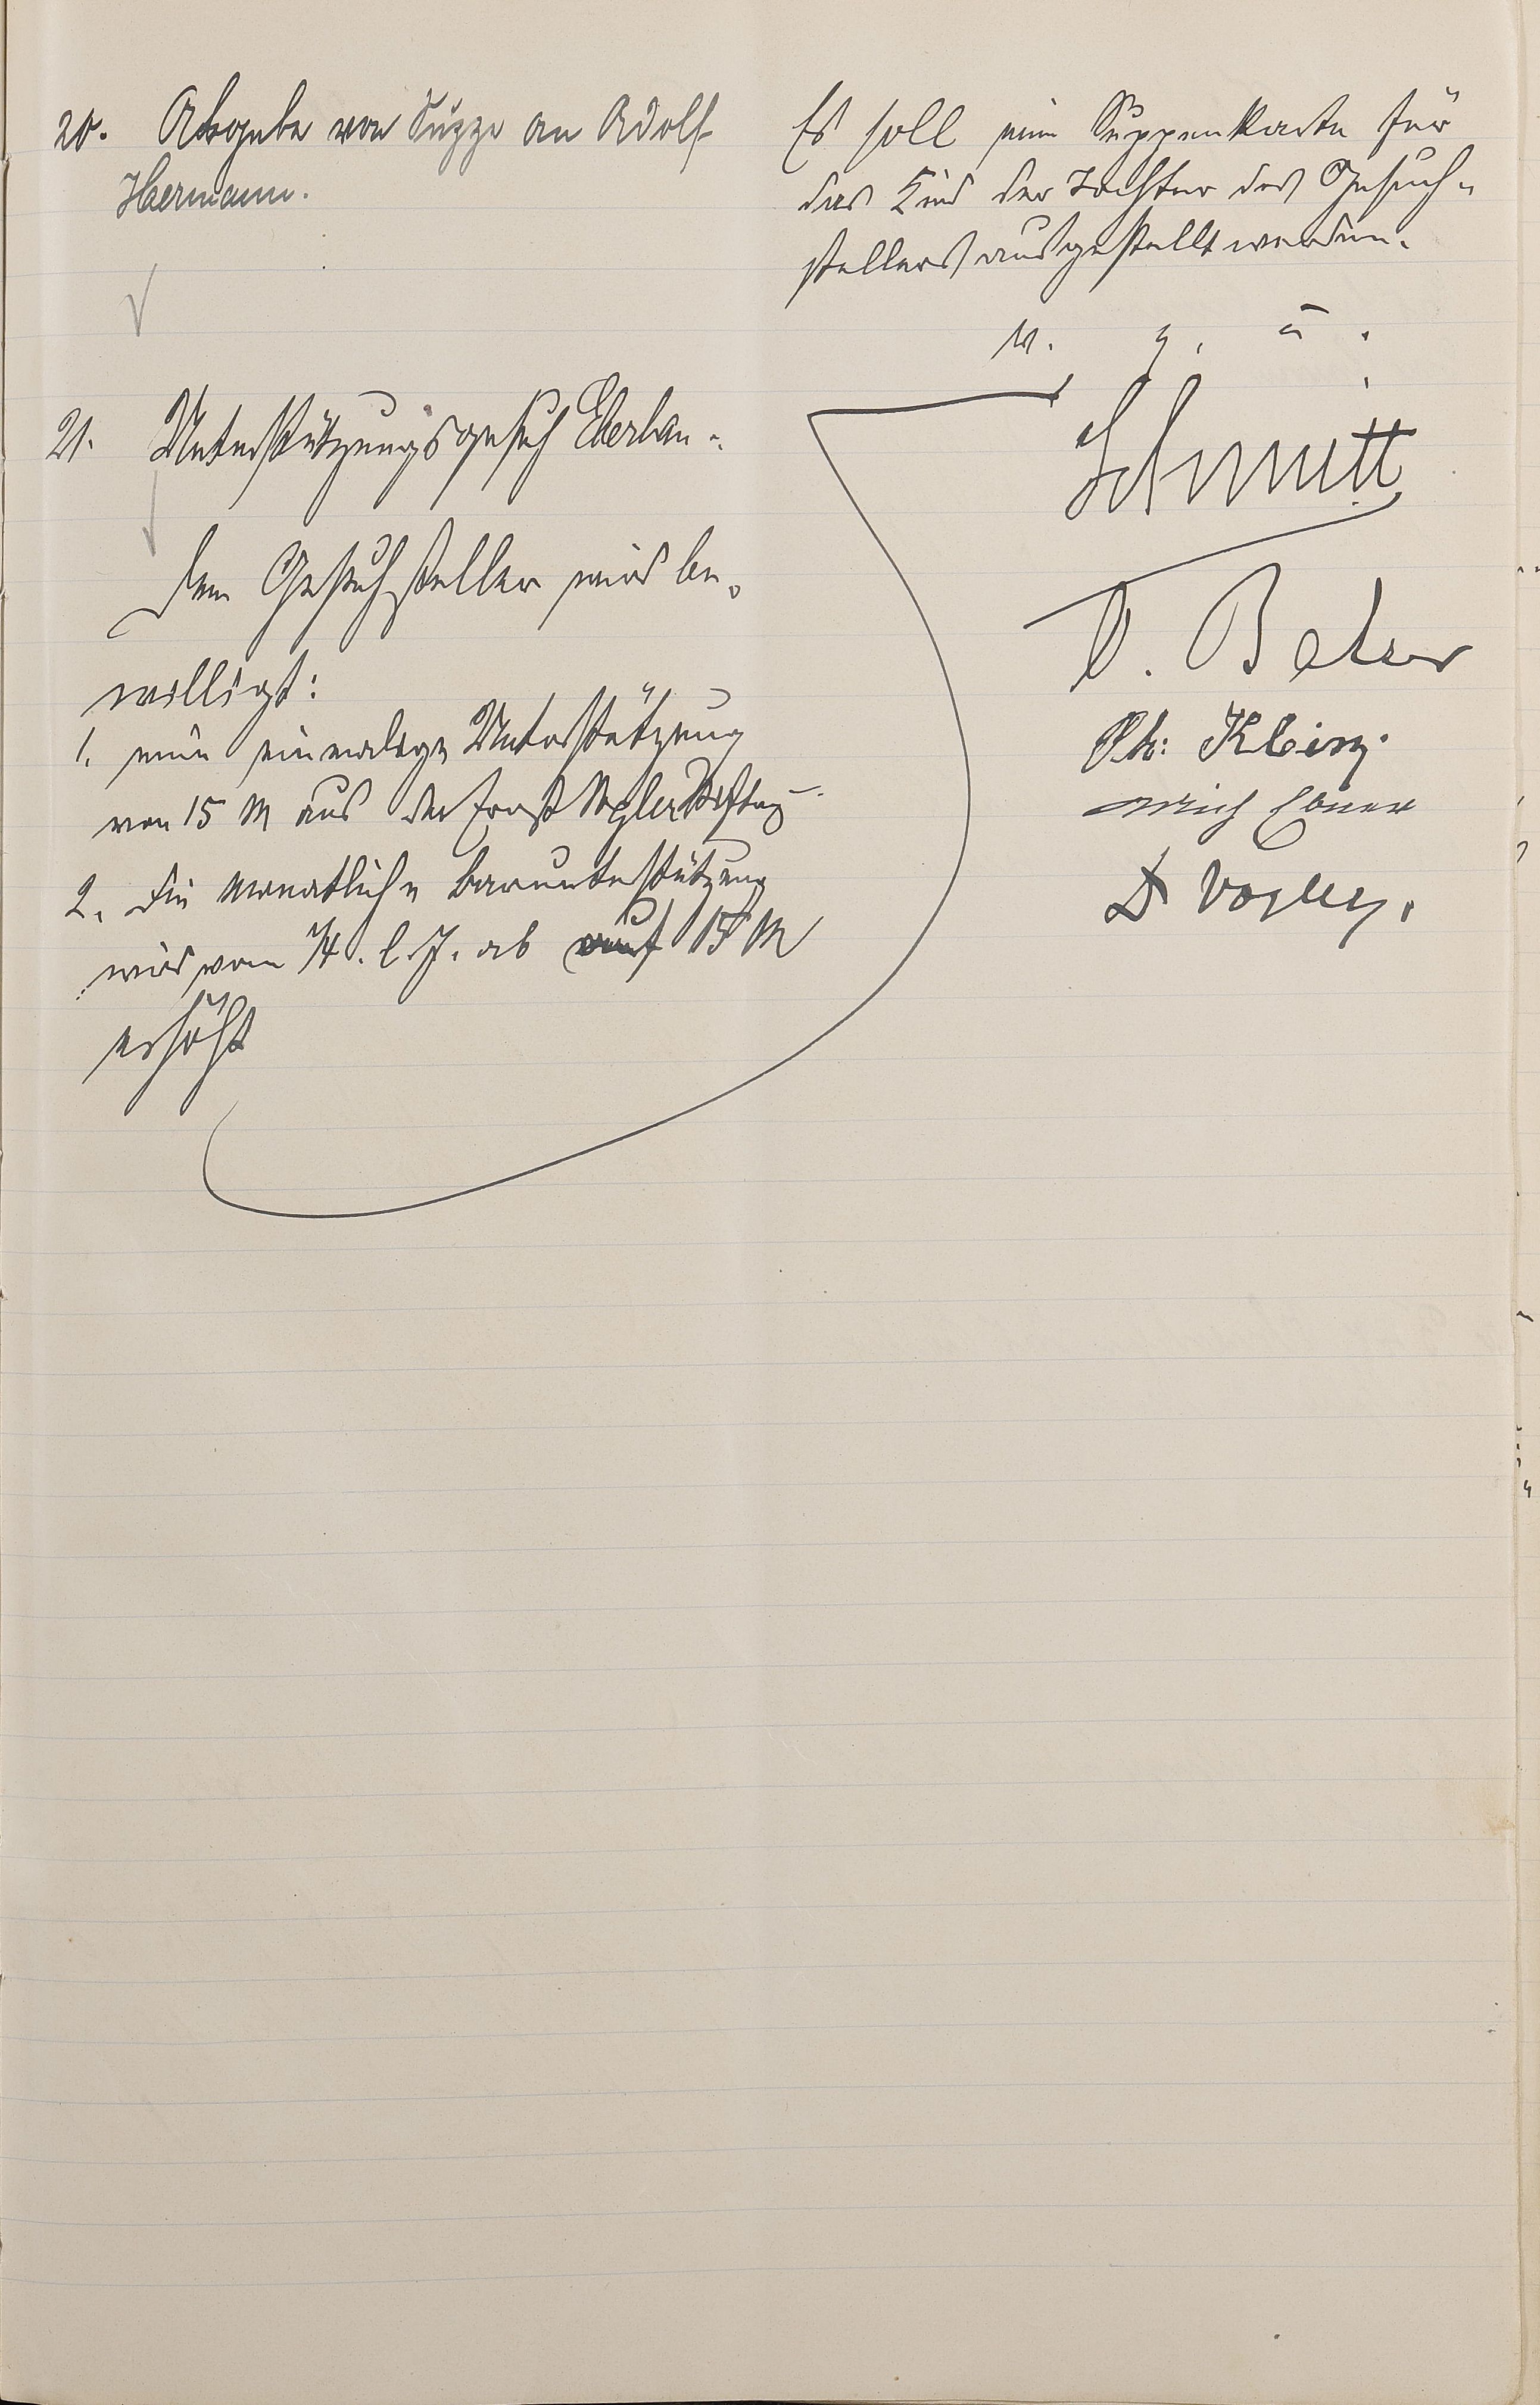 20. Abgabe von Suppe an Adolf
Hermann.
Es soll eine Suppenkarte für
das Kind der Tochter des Gesuch-
stellers ausgestellt werden.
v. g. u.
21. Unterstützungsgesuch Eberhan
Dem Gesuchsteller wird be-
willigt:
1. eine einmalige Unterstützung
von 15 M aus der Ernst
2. Die monatliche Barunterstützung
wird vom 1/4. l. J. ab auf 15 M
erhöht
Schmitt
Ph: Klein
D Vogley.